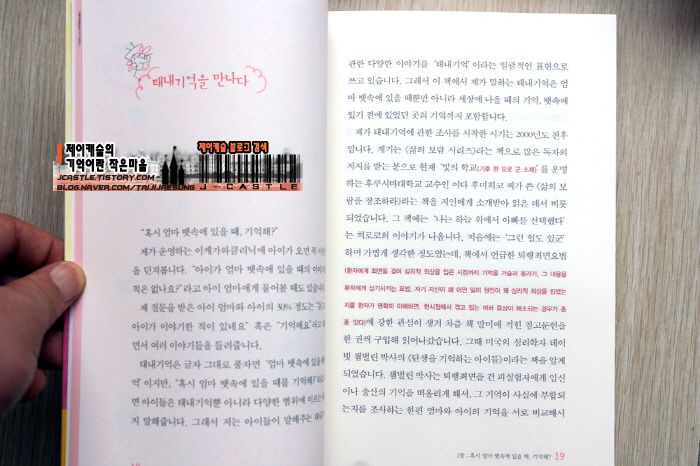 태내기억을 만나다
제이캐슬의
기억이란 작은마을
제이캐슬 블로그 검색
JCASTLE.TISTORY.COM
BLOG.NAVER.COM/TAIJIJAESUNG
J-CASTLE
"혹시 엄마 뱃속에 있을 때, 기억해?"
제가 운영하는 이케가와클리닉에 아이가 오면 꼭 이
을 던져봅니다. "아이가 엄마 뱃속에 있을 때의
적은 없나요?"라고 아이 엄마에게 물어볼 때도 있습니
제 질문을 받은 아이 엄마와 아이의 30% 정도는
아이가 이야기한 적이 있네요" 혹은 "기억해요"라고
면서 여러 이야기들을 들려줍니다.
태내기억은 글자 그대로 풀자면 '엄마 뱃속에 있을
억'이지만, "혹시 엄마 뱃속에 있을 때를 기억해?"
면 아이들은 태내기억뿐 아니라 다양한 범위에
지 말해줍니다. 그래서 저는 아이들이 말해주는
관한 다양한 이야기를 '태내기억'이라는 일괄적인 표현으로
쓰고 있습니다. 그래서 이 책에서 제가 말하는 태내기억은 엄
마 뱃속에 있을 때뿐만 아니라 세상에 나올 때의 기억, 뱃속에
있기 전에 있었던 곳의 기억까지 포함합니다.
제가 태내기억에 관한 조사를 시작한 시기는 2000년도 전후
입니다. 계기는 《삶의 보람 시리즈》라는 책으로 많은 독자의
지지를 받는 분으로 현재 '빛의 학교(기후 현 묘로 군 소재)'를 운영
하는 후쿠시마대학교 교수인 이다 후미히코 씨가 쓴 《삶의 보
람을 창조하라》라는 책을 지인에게 소개받아 읽은 데서 비롯
되었습니다. 그 책에는 '나는 하늘 위에서 아빠를 선택했다'
는 히로로의 이야기가 나옵니다. 처음에는 '그런 일도 있군'
하며 가볍게 생각한 정도였는데, 책에서 언급한 퇴행최면요법
(환자에게 최면을 걸어 심리적 외상을 입은 시점까지 기억을 거슬러 올라가, 그 내용을
환자에게 상기시키는 요법. 자기 자신이 왜 어떤 일이 원인이 돼 심리적 외상을 입었는
지를 환자가 명확히 이해하면, 현시점에서 겪고 있는 여러 증상이 해소되는 경우가 종
종 있다)에 강한 관심이 생겨 차츰 책 말미에 적힌 참고문헌을
한 권씩 구입해 읽어나갔습니다. 그때 미국의 심리학자 데이
빗 챔벌린 박사의 《탄생을 기억하는 아이들》이라는 책을 알게
되었습니다. 챔벌린 박사는 퇴행최면을 건 피실험자에게 임신
이나 출산의 기억을 떠올리게 해서, 그 기억이 사실에 부합되
는지를 조사하는 한편 엄마와 아이의 기억을 서로 비교해서
1장 : 혹시 엄마 뱃속에 있을 때, 기억해? 19